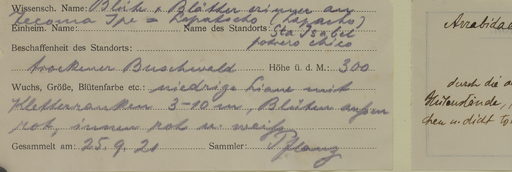 Wissensch. Name: Blüh. + Blätter erinner an
Tecoma Ipe = Lapatscho (Lapacho)
Einheim. Name: Name des Standorts: Sta Isabel
potrero chico
Beschaffenheit des Standorts:
trockener Buschwald Höhe ü. d. M.: 300
Wuchs, Größe, Blütenfarbe etc.: niedrige Liane mit
Kletterranken 3-10 m, Blüten außen
rot, innen rot u. weiß
Gesammelt am: 25.9.21 Sammler: Pflanz
Arrabidae
durch die
Blütenstände,
u. dicht